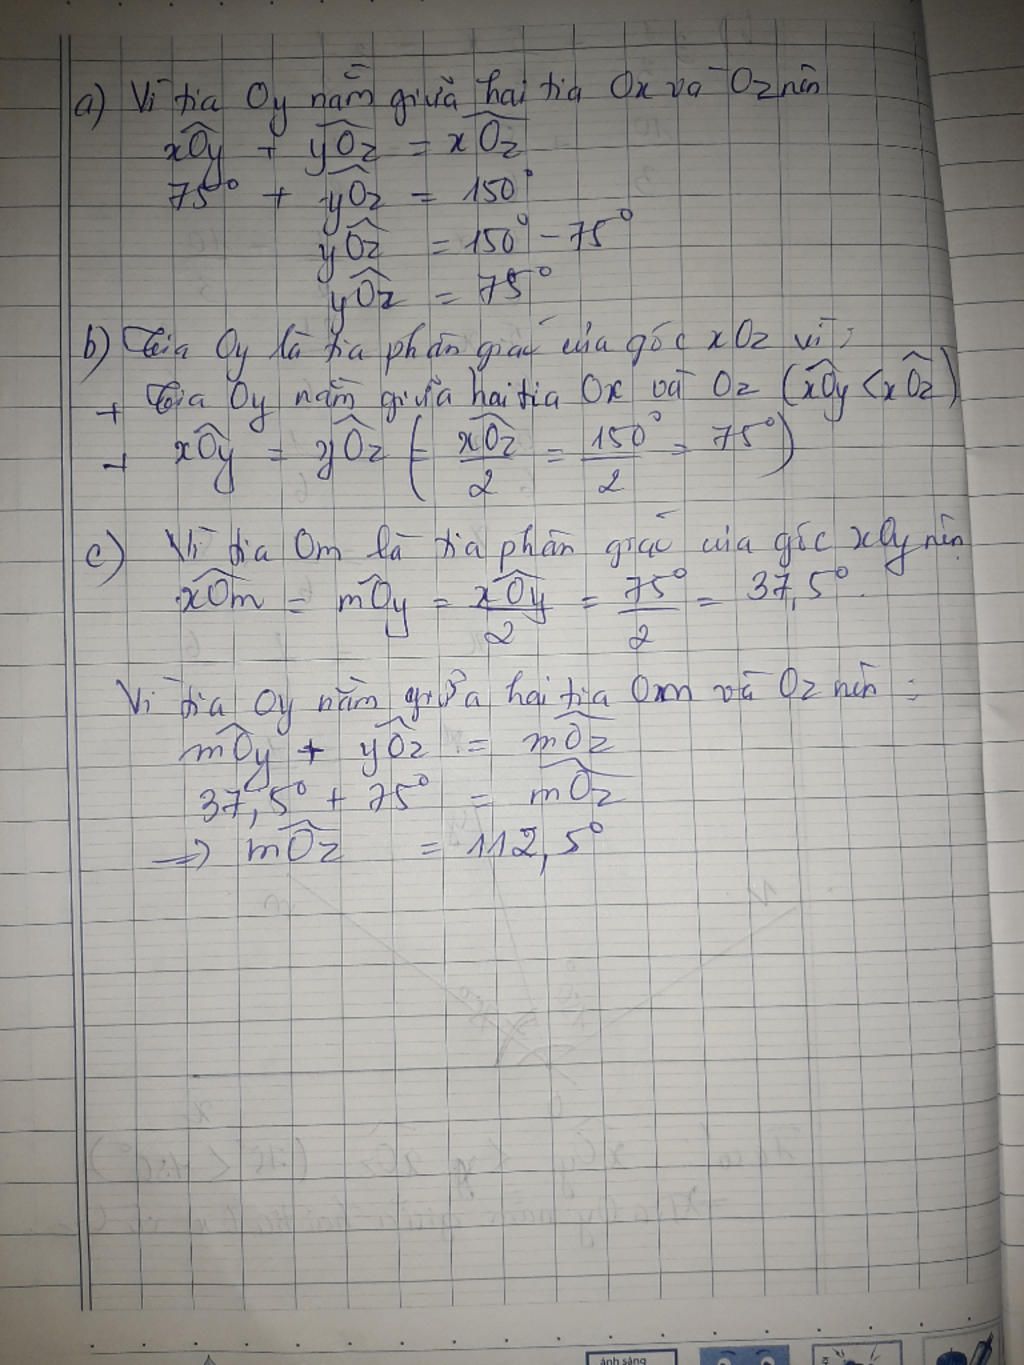 a) Vì tia Oy nằm giữa hai tia Ox và Oz nên
xÔy + yÔz = xÔz
75° + yÔz = 150°
yÔz = 150° - 75°
yÔz = 75°
b) Tia Oy là tia phân giác của góc xOz vì:
+ Tia Oy nằm giữa hai tia Ox và Oz (xÔy < xÔz)
+ xÔy = yÔz (= xÔz/2 = 150°/2 = 75°)
c) Vì tia Om là tia phân giác của góc xOy nên
xÔm = mÔy = xÔy/2 = 75°/2 = 37,5°
Vì tia Oy nằm giữa hai tia Om và Oz nên:
mÔy + yÔz = mÔz
37,5° + 75° = mÔz
=> mÔz = 112,5°
ánh sáng